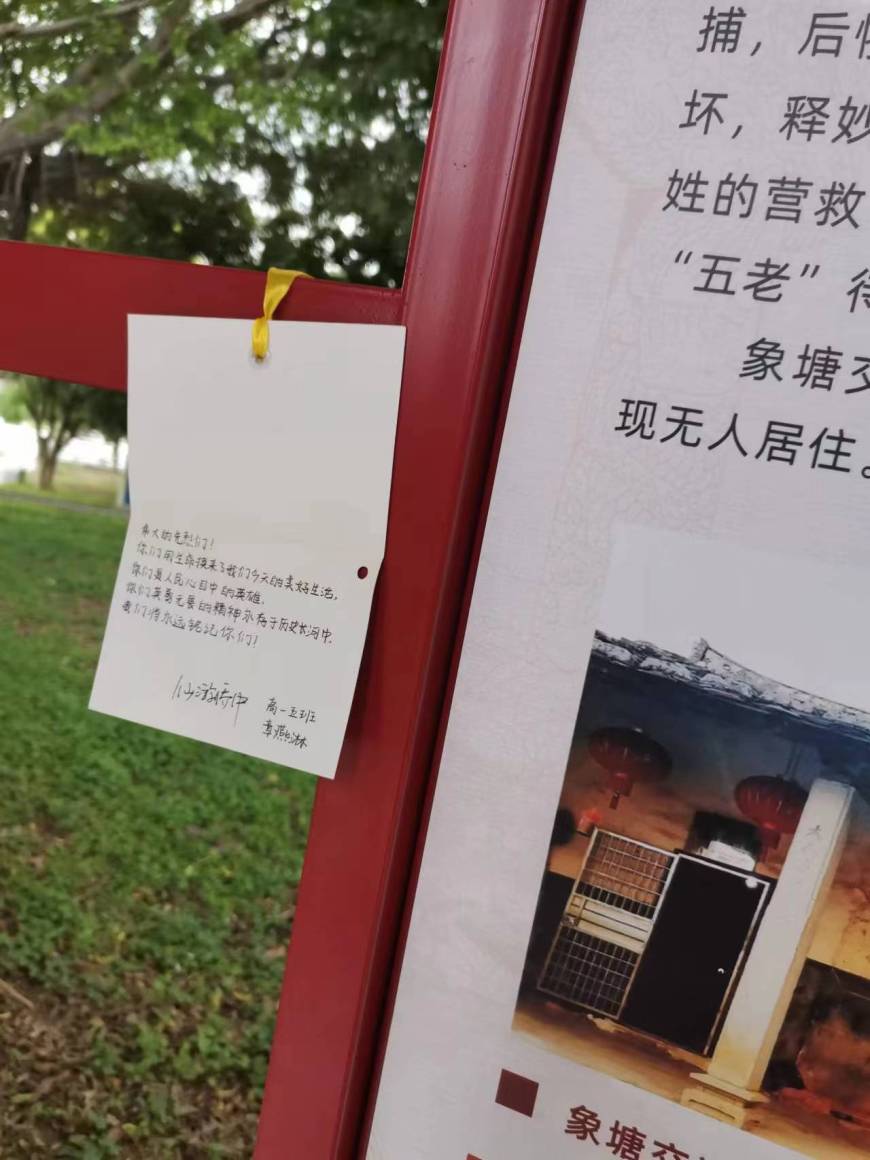 伟大的先烈们！
你们用生命换来了我们今天的美好生活，
你们是人民心目中的英雄，
你们英勇无畏的精神永存于历史长河中，
我们将永远铭记你们！
仙游侨中
高一五班
章燕琳
捕，后
坏，释妙
姓的营救
“五老”待
象塘交
现无人居住。
象塘交